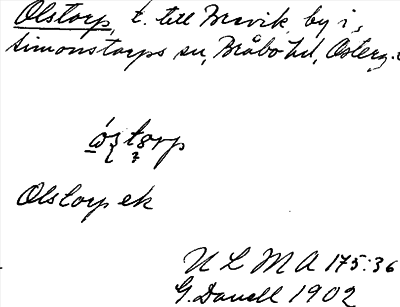 Olstorp, t. till Bravik, by i,
Simonstorps sn, Bråbo hd, Österg.
Olstorp ek
U L M A 175:36
G. Danell 1902